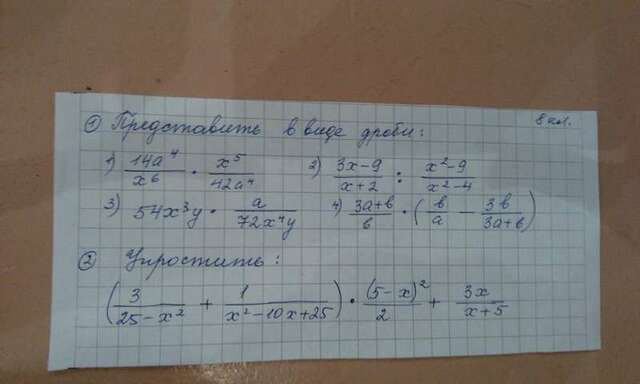 ① Представить в виде дроби: 8 кл.
1) 14a⁴/x⁶ · x⁵/42a⁴ 2) (3x-9)/(x+2) : (x²-9)/(x²-4)
3) 54x³y · a/72x⁴y 4) (3a+b)/b · (b/a - 3b/(3a+b))
② Упростить:
(3/(25-x²) + 1/(x²-10x+25)) · (5-x)²/2 + 3x/(x+5)